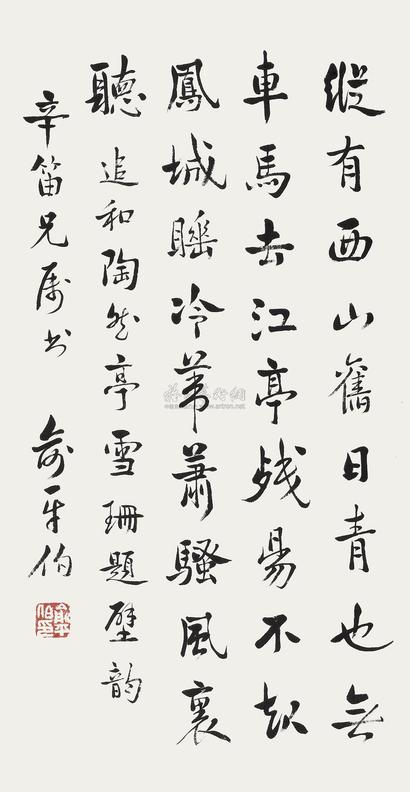 縱有西山舊日青也無
車馬去江亭残昜不起
鳳城睡冷葦蕭騷風裏
聽 追和陶然亭雪珊題壁韵
辛笛兄属书 俞平伯